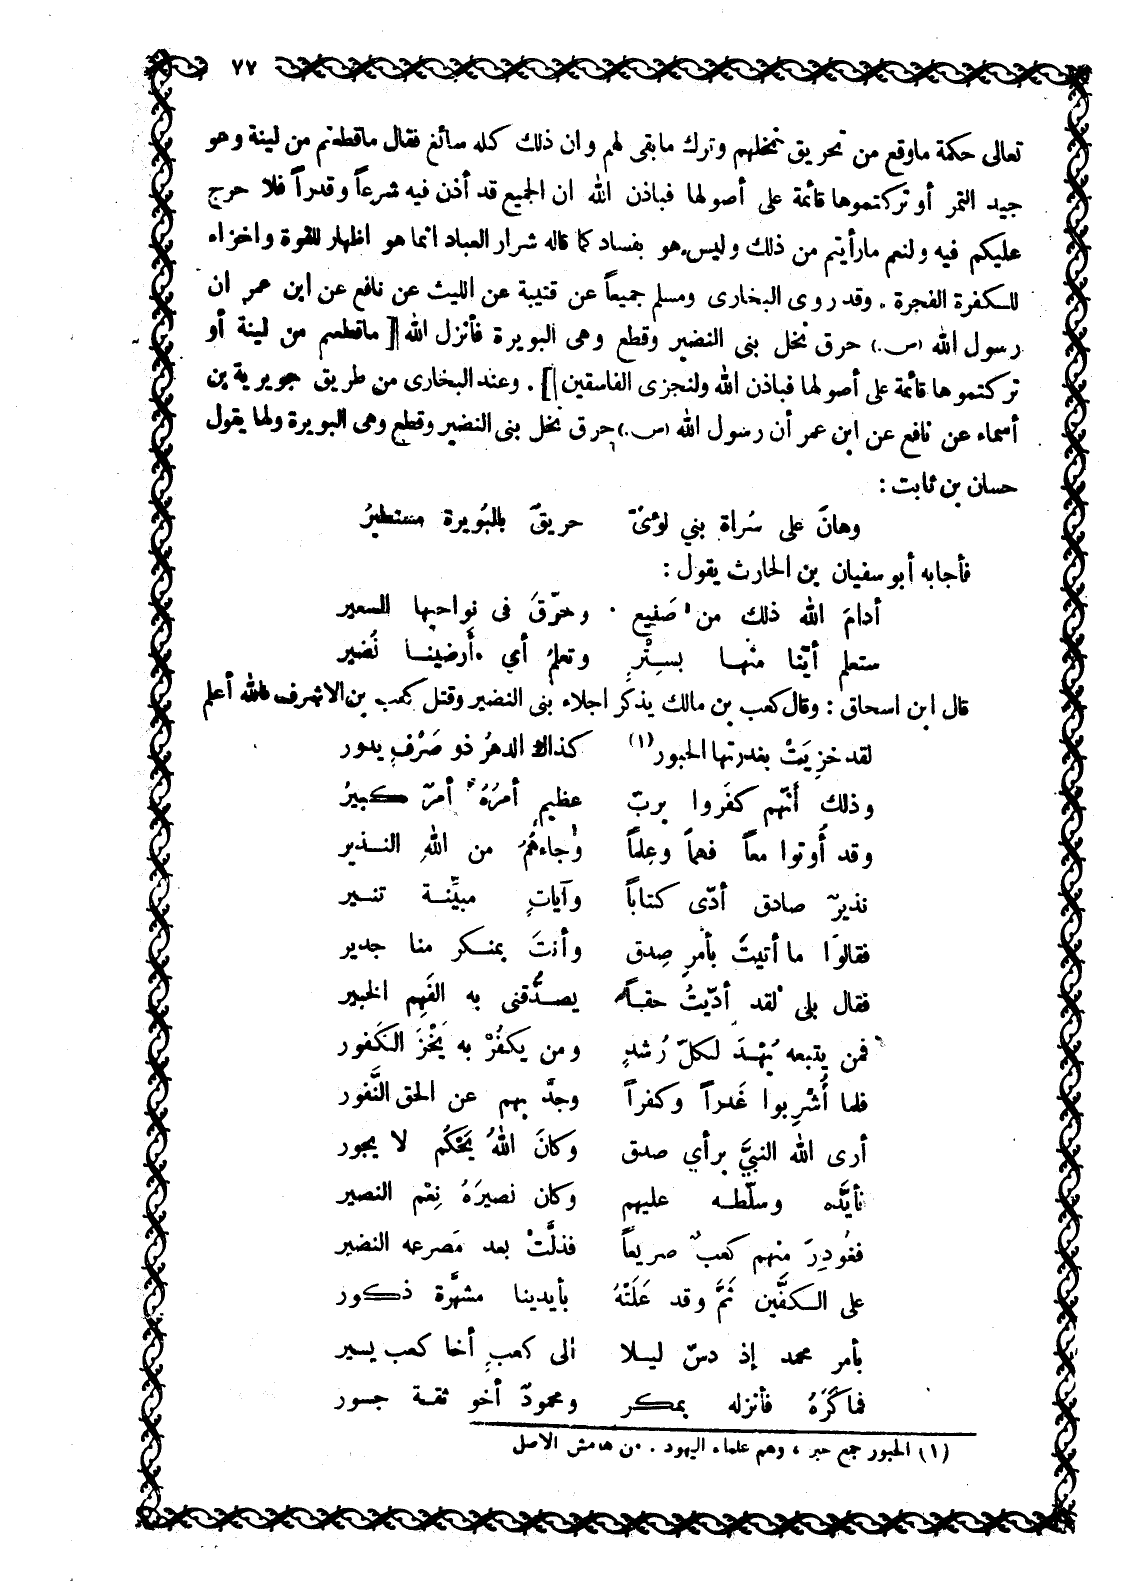 ٧٧
تعالى حكمة ماوقع من تحريق نخلهم وترك مابقى لهم وان ذلك كله سائغ فقال ماقطعتم من لينة وهو
جيد التمر أو تركتموها قائمة على أصولها فباذن الله ان الجميع قد أذن فيه شرعاً وقدراً فلا حرج
عليكم فيه ولنعم مارأيتم من ذلك وليس هو بفساد كما قاله شرار العباد انما هو اظهار للقوة واخزاء
للكفرة الفجرة . وقد روى البخارى ومسلم جميعاً عن قتيبة عن الليث عن نافع عن ابن عمر ان
رسول الله (ص.) حرق نخل بنى النضير وقطع وهى البويرة فأنزل الله [ ماقطعتم من لينة أو
تركتموها قائمة على أصولها فباذن الله ولنجزى الفاسقين ] . وعند البخارى من طريق جويرية بن
أسماء عن نافع عن ابن عمر أن رسول الله (ص.) حرق نخل بنى النضير وقطع وهى البويرة ولها يقول
حسان بن ثابت :
وهانَ على سُراة بني لؤىّ حريقٌ بالبُويرة مستطيرُ
فأجابه أبو سفيان بن الحارث يقول :
أدامَ الله ذلك من صَنيع وحرّقَ فى نواحيها السعير
ستعلم أيّنا منها بسِتْرٍ وتعلمُ أي أرضينا نَضير
قال ابن اسحاق : وقال كعب بن مالك يذكر اجلاء بنى النضير وقتل كعب بن الاشرف فالله أعلم
لقد خزِيَتْ بغدرتها الحبور (١) كذاك الدهرُ ذو صَرْفٍ يدور
وذلك أَنّهم كفَروا بربّ عظيمٍ أمرُهُ أمرٌ كبيرُ
وقد أُوتوا معاً فهماً وعِلماً وجاءهُمُ من اللهِ النذير
نذيرٌ صادق أدّى كتاباً وآياتٍ مبيِّنة تنير
فقالوا ما أتيتَ بأمرِ صِدق وأنتَ بمنكر منا جدير
فقال بلى لقد أدّيتُ حقاً يصدُّقنى به الفَهِم الخبير
فمن يتبعه يُهْدَ لكلّ رُشدٍ ومن يكفُرْ به يُخْزَ الكَفور
فلما أُشْرِبوا غَدراً وكفراً وجدَّ بهم عن الحق النَّفور
أرى الله النبيَّ برأي صدق وكانَ اللهُ يَحْكُم لا يجور
فأيَّده وسلّطه عليهم وكان نصيرَهُ نِعْم النصير
فغُودِرَ مِنهم كعبٌ صريعاً فذلَّتْ بعد مَصرعه النضير
على الكفَّين ثَمَّ وقد عَلَتْهُ بأيدينا مشهَّرة ذكور
بأمر محمد إذ دسّ ليلا الى كعبٍ أخا كعب يسير
فماكَرَهُ فأنزله بمكر ومحمودٌ أخو ثقة جسور
(١) الحبور جمع حبر ، وهم علماء اليهود . من هامش الاصل